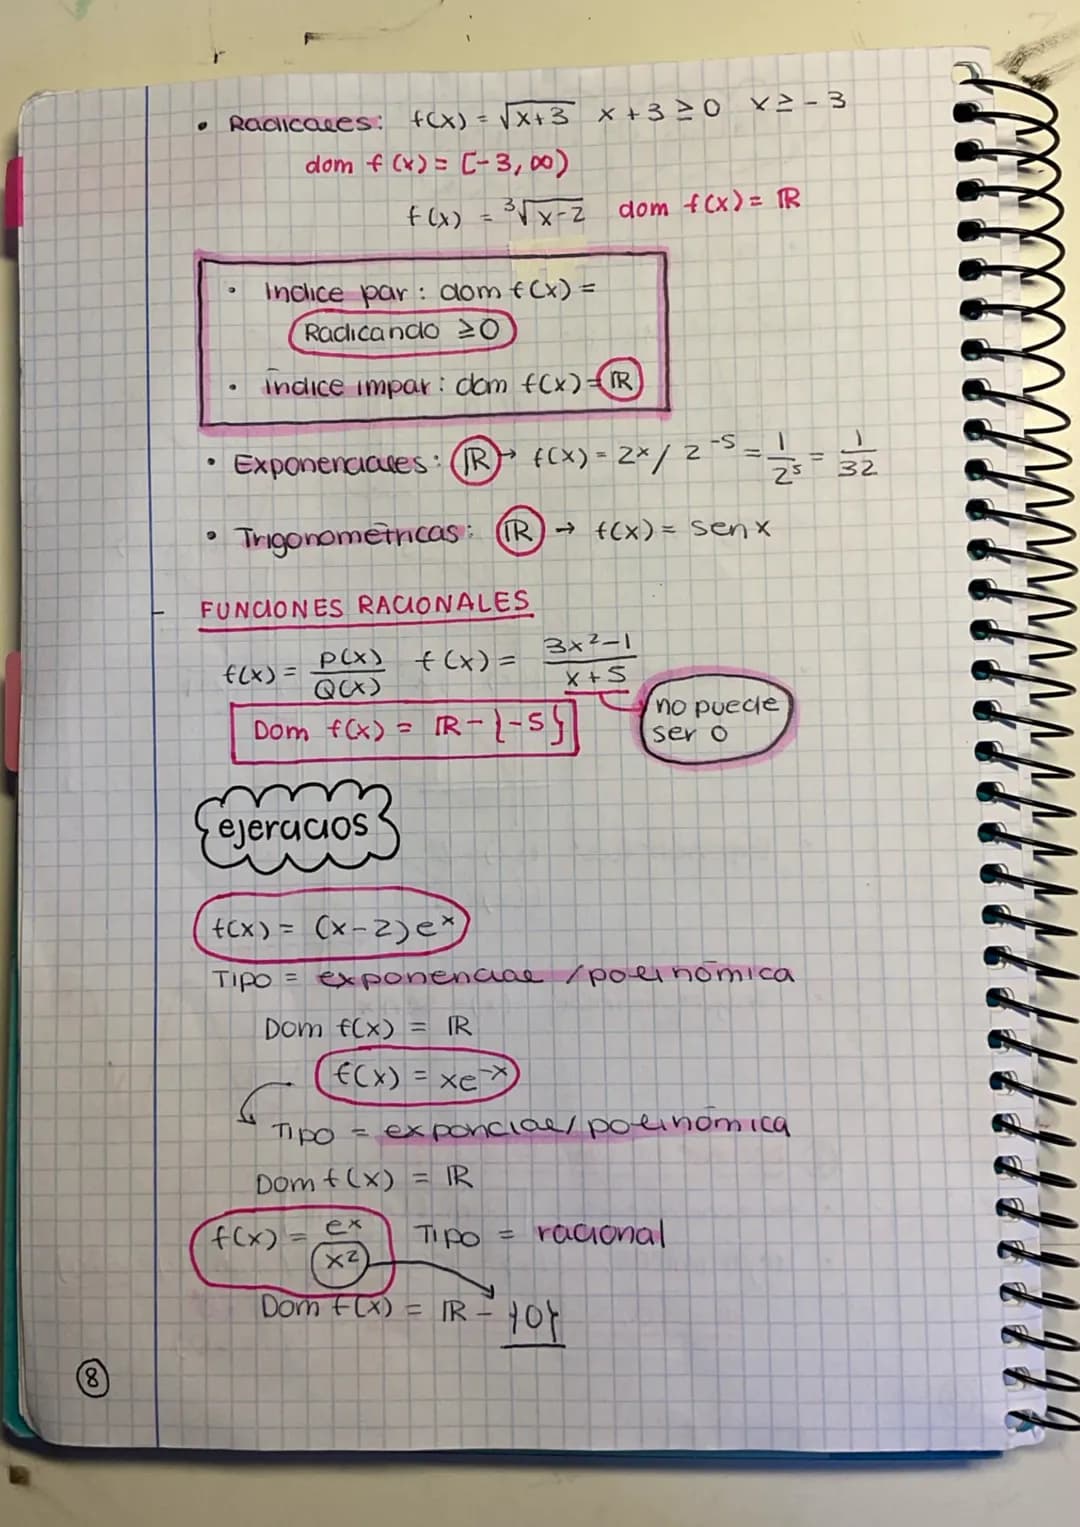 • Radicales: f(x) = √x+3 x+3 ≥ 0 x ≥ -3
dom f(x) = [-3, ∞)
f(x) = ³√x-2 dom f(x) = ℝ
• Indice par: dom f(x) =
Radicando ≥0
• índice impar: dom f(x) = ℝ
• Exponenciales: ℝ → f(x) = 2ˣ / 2⁻⁵ = 1/2⁵ = 1/32
• Trigonométricas: ℝ → f(x) = sen x
FUNCIONES RACIONALES
f(x) = P(x)/Q(x) f(x) = 3x²-1/x+5
no puede
ser 0
Dom f(x) = ℝ - {-5}
ejercicios
f(x) = (x-2)eˣ
TIPO = exponencial / polinómica
Dom f(x) = ℝ
f(x) = xe⁻ˣ
TIPO = exponcial / polinómica
Dom f(x) = ℝ
f(x) = eˣ/x² TIPO = racional
Dom f(x) = ℝ - {0}
8